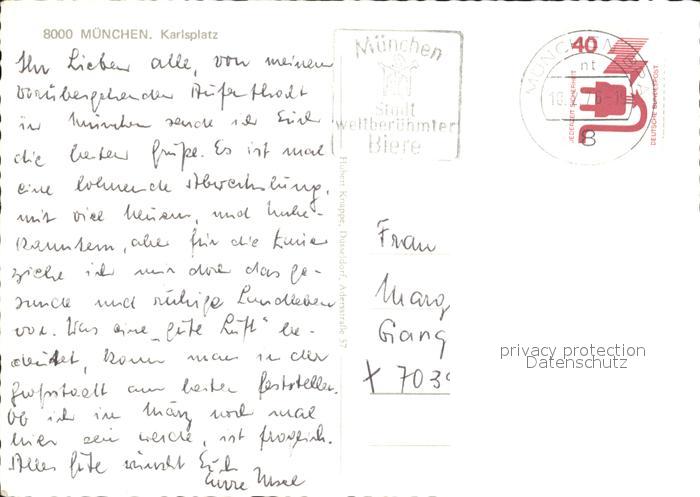 8000 MÜNCHEN. Karlsplatz
Ihr Lieben alle, von meinem
vorübergehenden Aufenthalt
in München sende ich Euch
die besten Grüße. Es ist mal
eine lohnende Abwechslung,
mit viel Neuem, und Unbe-
kanntem, aber für die Dauer
ziehe ich mir doch das ge-
sunde und ruhige Landleben
vor. Was eine „gute Luft" be-
deutet, kann man in der
Großstadt am besten feststellen.
Ob ich im März noch mal
hier sein werde, ist fraglich.
Alles Gute wünscht Euch
Eure
München
Stadt
weltberühmter
Biere
MÜNCHEN
nt
8
40
JEDERZEIT SICHERHEIT
DEUTSCHE BUNDESPOST
Hubert Knuppe, Düsseldorf, Adersstraße 57
Frau
Marg
Gang
X 7039
privacy protection
Datenschutz